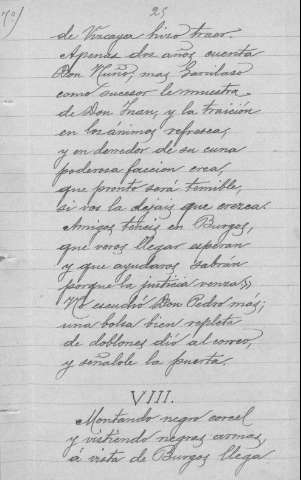 7º)
25
de Vizcaya hizo traer.
Apenas dos años cuenta
Don Nuño, mas Garcilaso
como sucesor le muestra
de Don Juan, y la traición
en los ánimos refresca,
y en derredor de su cuna
poderosa faccion crea,
que pronto será temible,
si vos la dejais que crezca.
Amigos teneis en Burgos,
que veros llegar esperan
y que ayudaros sabrán
porque la justicia venza.»
No escuchó Don Pedro más;
una bolsa bien repleta
de doblones dió al correo,
y señalole la puerta.
VIII.
Montando negro corcel
y vistiendo negras armas,
á vista de Burgos llega